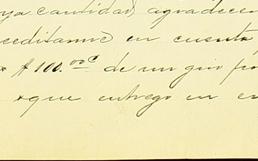 ya cantidad, agradecer
reditarme en cuenta
$100.00 de un giro
que entrego en